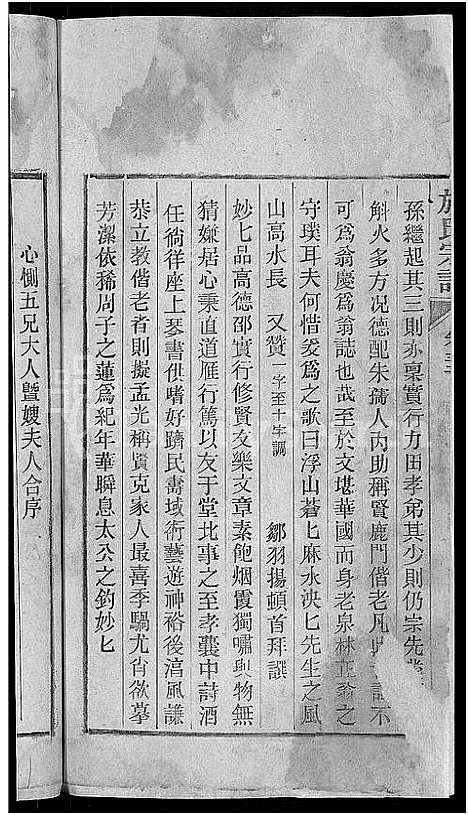 施氏宗譜
孫繼起其三則亦稟實行力田孝弟其少則仍宗先
斛火多方况德配朱孺人內助稱賢鹿門偕老凡 不
可爲翁慶爲翁誌也哉至於文堪華國而身老泉林正翁之
守璞耳夫何惜爰爲之歌曰浮山蒼匕麻水泱匕先生之風
山高水長　又贊一字至十字調　鄒羽揚頓首拜譔
妙匕品高德邵實行修賢友樂文章素飽烟霞獨嘯與物無
猜嫌居心秉直道雁行篤以友于堂北事之至孝囊中詩酒
任徜徉座上琴書供嗜好躋民壽域術藝遊神裕後淯風謙
恭立教偕老者則擬孟光稱賢克家人最喜季騧尤肖欲摹
芳潔依稀周子之蓮爲紀年華瞬息太公之釣妙匕
心惻五兄大人曁嫂夫人合序